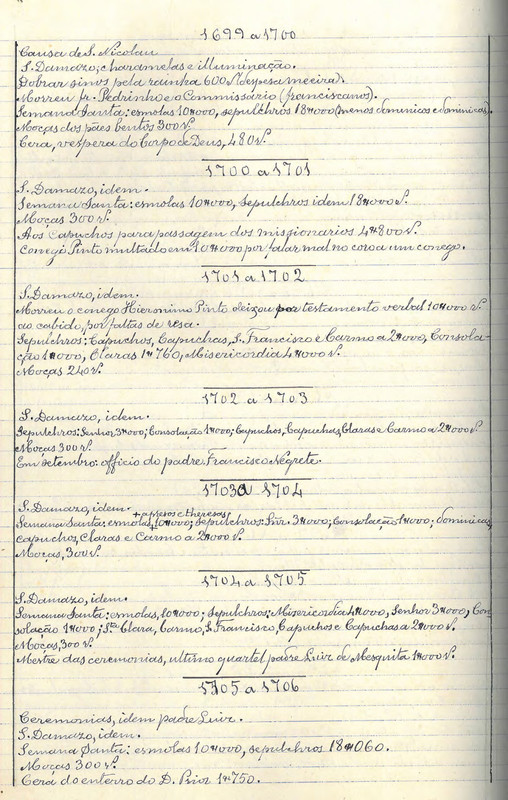 1699 a 1700
Causa de S. Nicolau
S. Damazo, charamelas e illuminação.
Dobrar sinos pela rainha 600 rs. (despesa meeira).
Morreu Fr. Pedrinho e o Commissário (franciscanos).
Semana Santa: esmolas 10#000, sepulchros 18#000 (menos dominicos e dominicas).
Moças dos pães bentos 300 rs.
Cera, vespera do Corpo de Deus, 480 rs.
1700 a 1701
S. Damazo, idem.
Semana Santa: esmolas 10#000, sepulchros idem 18#000 rs.
Moças 300 rs.
Aos Capuchos para passagem dos missionarios 4#800 rs.
Conego Pinto multado em 10#000 por falar mal no coro a um conego.
1701 a 1702
S. Damazo, idem.
Morreu o conego Hieronimo Pinto deixou por testamento verbal 10#000 rs.
ao cabido, por faltas de resa.
Sepulchros: Capuchos, Capuchas, S. Francisco e Carmo a 2#000, Consola-
ção 1#000, Claras 1#760, Misericordia 4#000 rs.
Moças 240 rs.
1702 a 1703
S. Damazo, idem.
Sepulchros: Senhor 3#000; Consolação 1#000; Capuchos, Capuchas, Claras e Carmo a 2#000 rs.
Moças 300 rs.
Em setembro: officio do padre Francisco Negrete.
1703 a 1704
S. Damazo, idem.
+ a presos e theresas
Semana Santa: esmolas, 10#000; sepulchros: Snr. 3#000; Consolação 1#000; dominicas,
capuchos, Claras e Carmo a 2#000 rs.
Moças, 300 rs.
1704 a 1705
S. Damazo, idem.
Semana Santa: esmolas, 10#000; Sepulchros: Misericordia 4#000, Senhor 3#000, Con
solação 1#000; Sta Clara, Carmo, S. Francisco, Capuchos e Capuchas a 2#000 rs.
Moças, 300 rs.
Mestre das ceremonias, ultimo quartel padre Luiz de Mesquita 1#000 rs.
1705 a 1706
Ceremonias, idem padre Luiz.
S. Damazo, idem.
Semana Santa: esmolas 10#000, sepulchros 18#060.
Moças 300 rs.
Cera do enterro do D. Prior 1#750.